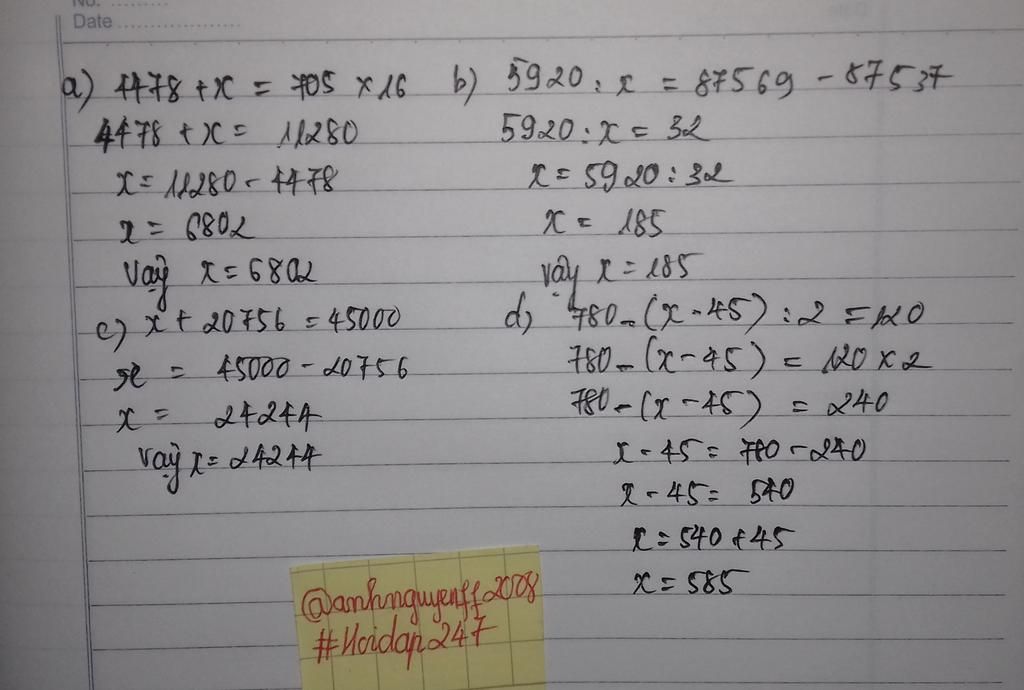 No. ..........
Date ......................
a) 4478 + x = 705 x 16
4478 + x = 11280
x = 11280 - 4478
x = 6802
Vậy x = 6802
b) 5920 : x = 87569 - 87537
5920 : x = 32
x = 5920 : 32
x = 185
vậy x = 185
c) x + 20756 = 45000
x = 45000 - 20756
x = 24244
Vậy x = 24244
d) 780 - (x - 45) : 2 = 120
780 - (x - 45) = 120 x 2
780 - (x - 45) = 240
x - 45 = 780 - 240
x - 45 = 540
x = 540 + 45
x = 585
@anhnguyenff2008
#Hoidap247